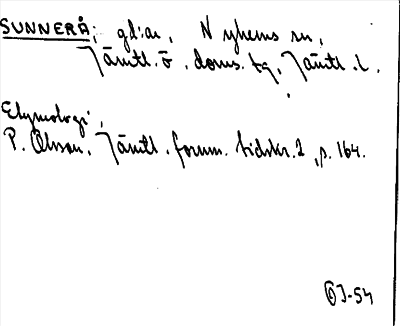 SUNNERÅ; gd:ar, Nyhems sn,
Jämtl. ö. doms. tg, Jämtl. l.
Etymologi,
P. Olsson, Jämtl. fornm. tidskr. 2, p. 164.
ÖJ-54